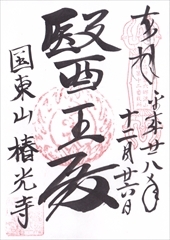 奉拝
平成廿八年
十二月廿六日
醫王殿
国東山 椿光寺